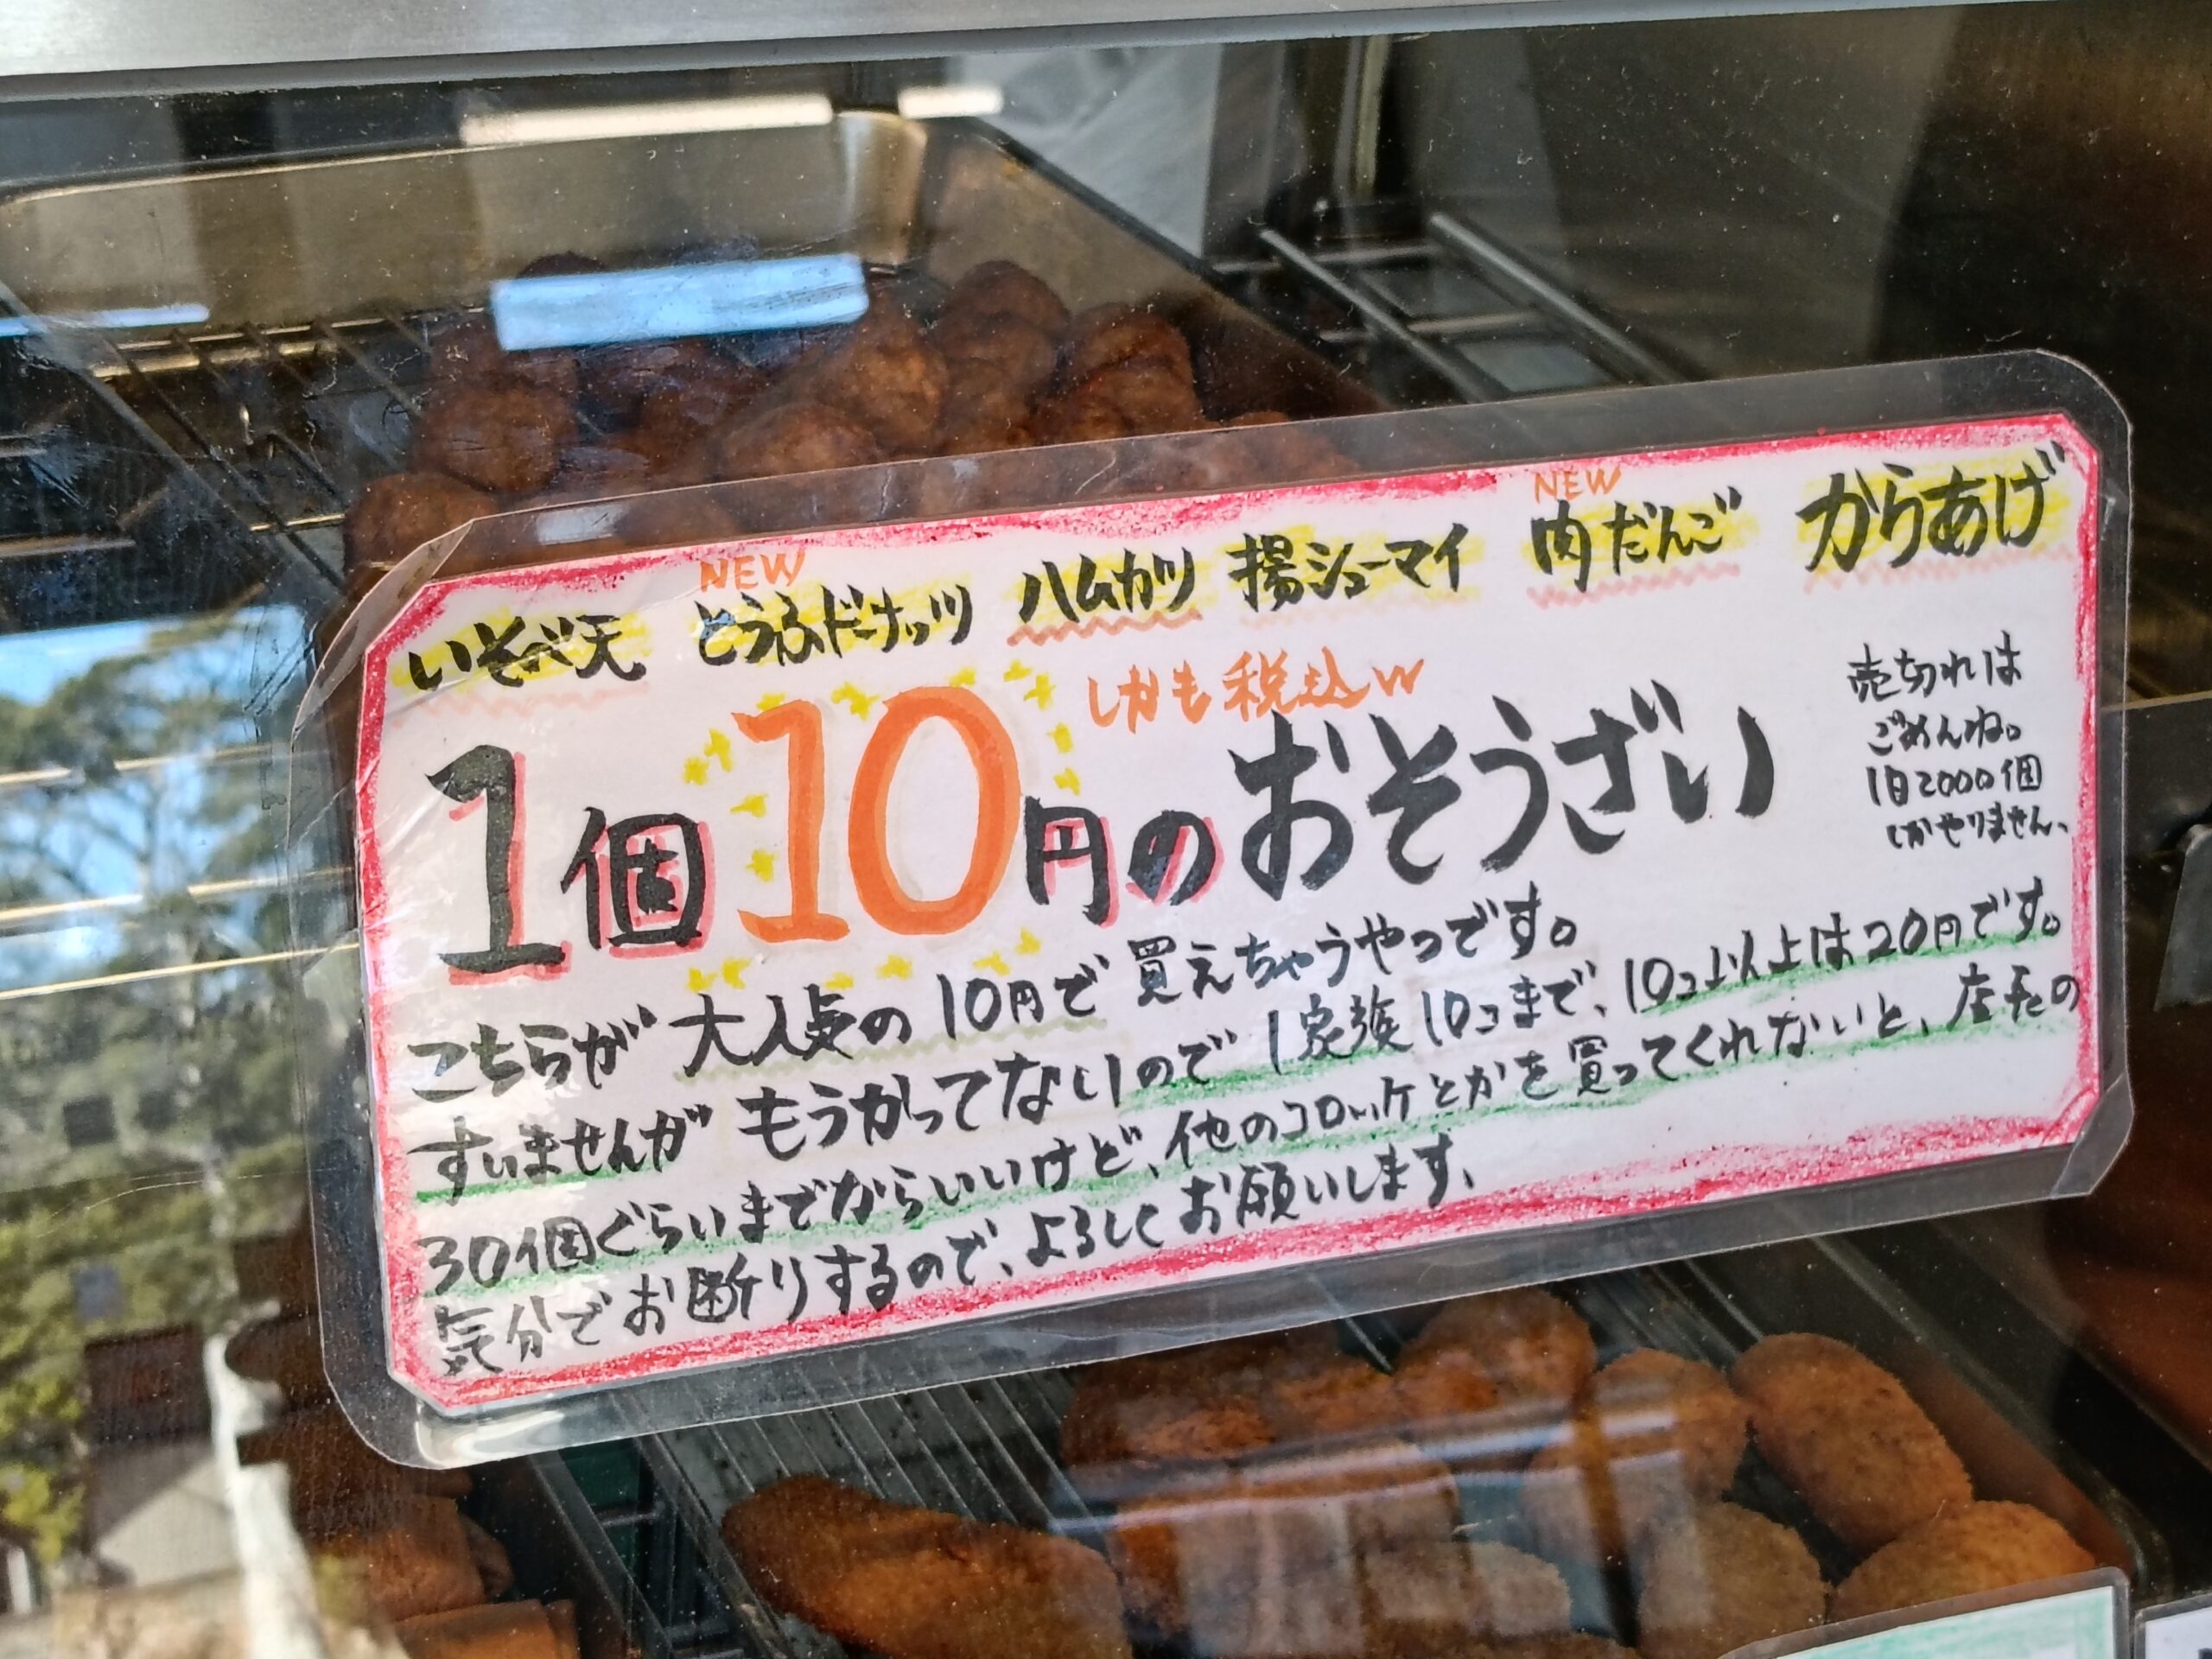 いそべ天 NEW とうふドーナッツ ハムカツ 揚シューマイ NEW 肉だんご からあげ
しかも税込w
1個10円のおそうざい
売切れは
ごめんね。
1日2000個
しかやりません、
こちらが大人気の10円で買えちゃうやつです。
すいませんがもうかってないので1家族10コまで、10コ以上は20円です。
30個ぐらいまでならいいけど、他のコロッケとかを買ってくれないと、店長の
気分でお断りするので、よろしくお願いします、